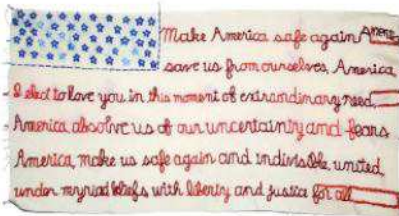 Make America safe again Ameri
save us from ourselves, America,
I elect to love you in this moment of extraordinary need,
America, absolve us of our uncertainty and fears
America, make us safe again and indivisible, united,
under myriad beliefs with liberty and justice for all